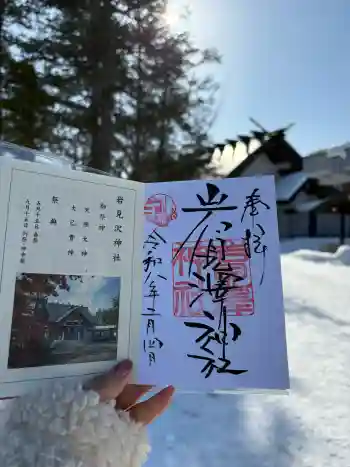 岩見沢神社
御祭神
天照大神
大己貴神
祭典
五月十五日 春祭
九月十五日
奉拝
岩見澤神社
令和八年二月四日